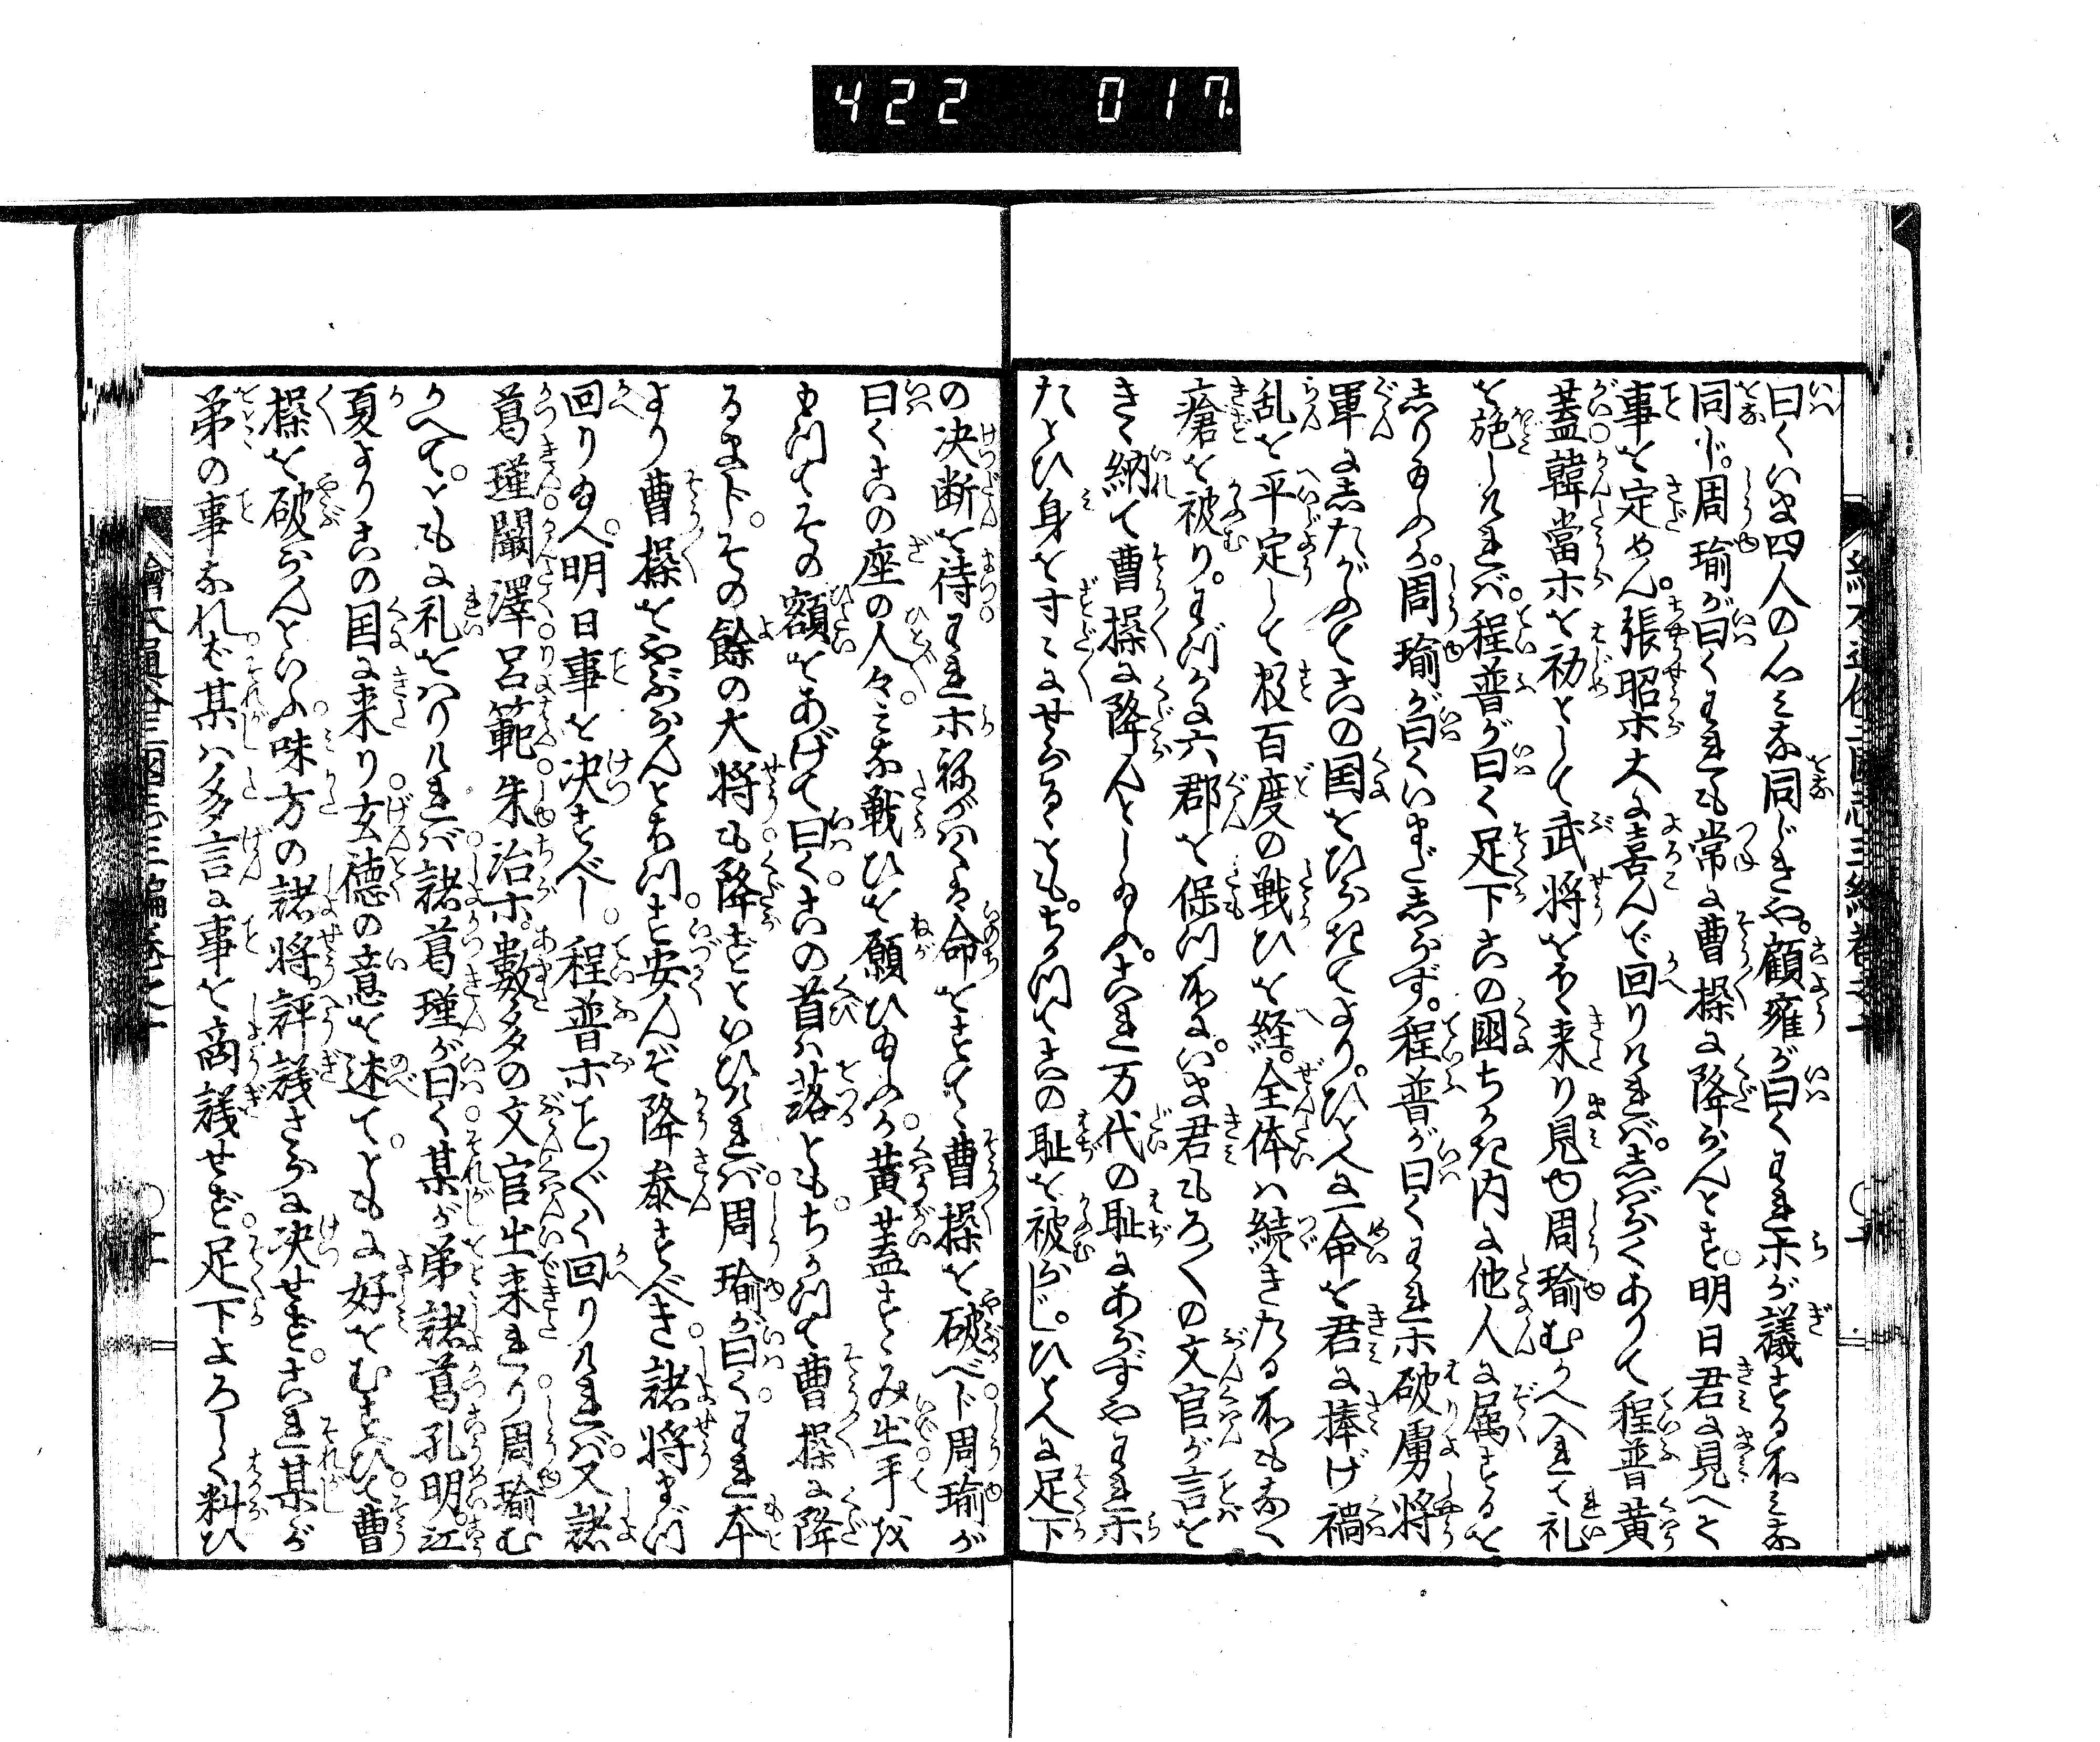 422 017
曰くいま四人の心みな同じきや。顧雍が曰くわれ等が議する所みな
同じ。周瑜が曰くわれも常に曹操に降らんとす。明日君に見へて
事を定めん。張昭等大に喜んで回りければ。しばらくありて程普黄
蓋。韓當等を初として武将おほく来り見ゆ周瑜むかへ入れて礼
を施しければ。程普が曰く足下この國ちかき内に他人に属するを
しり給ふか。周瑜が曰くいまだしらず。程普が曰くわれ等破虜将
軍にしたがふてこの国をひらきてより。ひとへに一命を君に捧げ禍
乱を平定して数百度の戦ひを経。全体は続きたる所もなく
瘡を被り。わづかに六郡を保つ所に。いま君もろ〱の文官が言を
きゝ納て曹操に降んとし給ふ。これ万代の恥にあらずやわれ等
たとひ身を寸々にせらるゝとも。ちかつてこの恥を被らじ。ひとへに足下
の决断を待。われ等ねがはくは命をすてゝ曹操を破べし。周瑜が
曰くこの座の人々。みな戦ひを願ひ給ふか。黄蓋すゝみ出。手を
もつてその額をあげて曰く。この首は落とも。ちかつて曹操に降
るまじ。その餘の大将も降まじといひければ。周瑜が曰く。われ本
より曹操をやぶらんとおもつ。安んぞ降参すべき。諸将まづ
回り給へ。明日事を决すべし。程普等こと〲く回りければ。又諸
葛瑾。闞澤。呂範。朱治等。數多の文官出来れり。周瑜む
かへて。ともに礼をはりければ。諸葛瑾が曰く。某が弟諸葛孔明。江
夏よりこの国に来り。玄徳の意を述て。ともに好をむすび。曹
操を破らんといふ。味方の諸将。評議さらに决せず。これ某が
弟の事なれば。某は多言に事を商議せず。足下よろしく料ひ